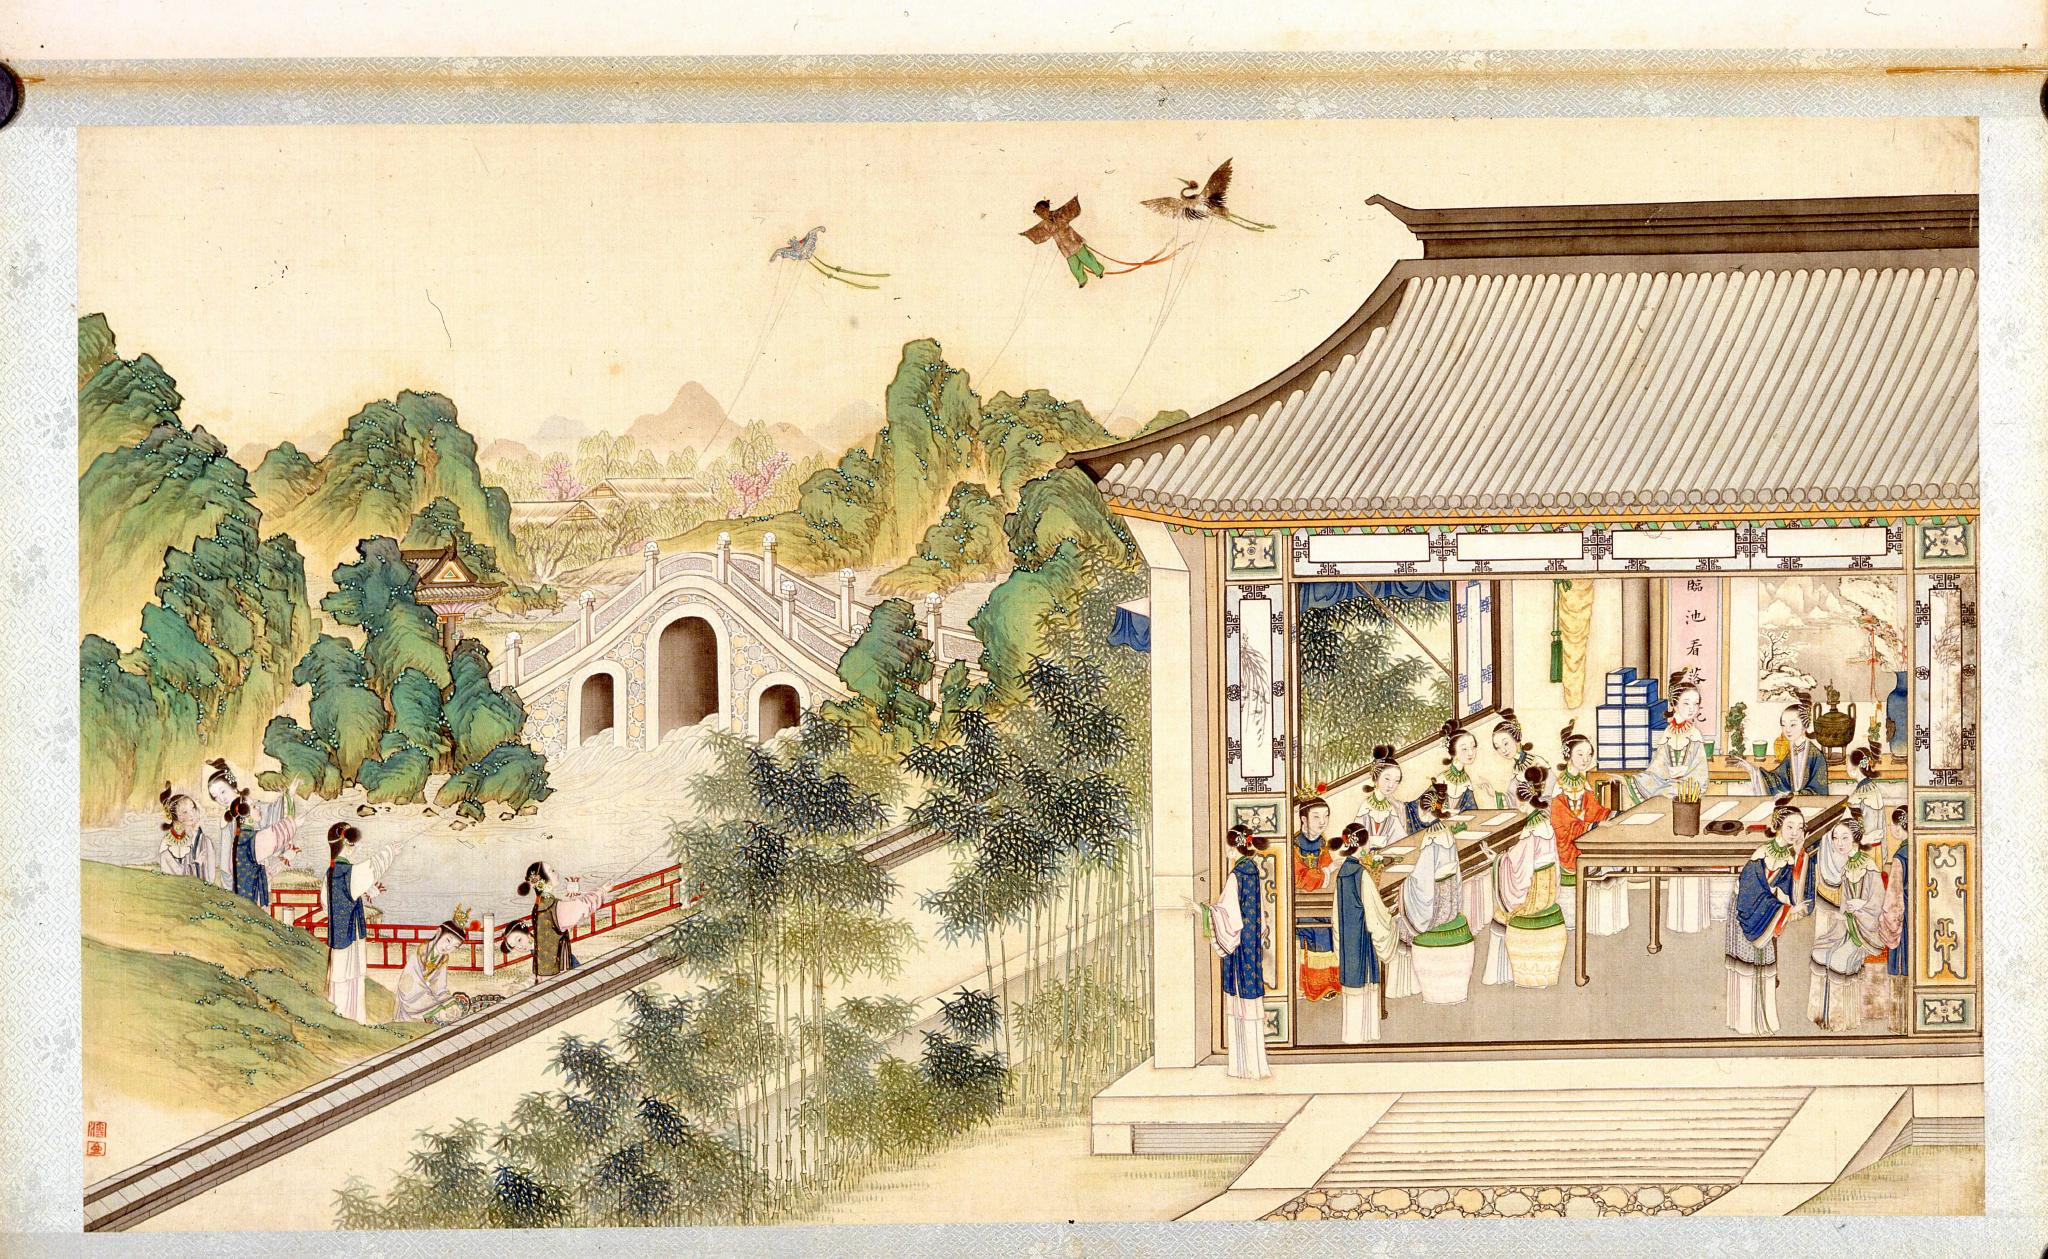 臨池看落花